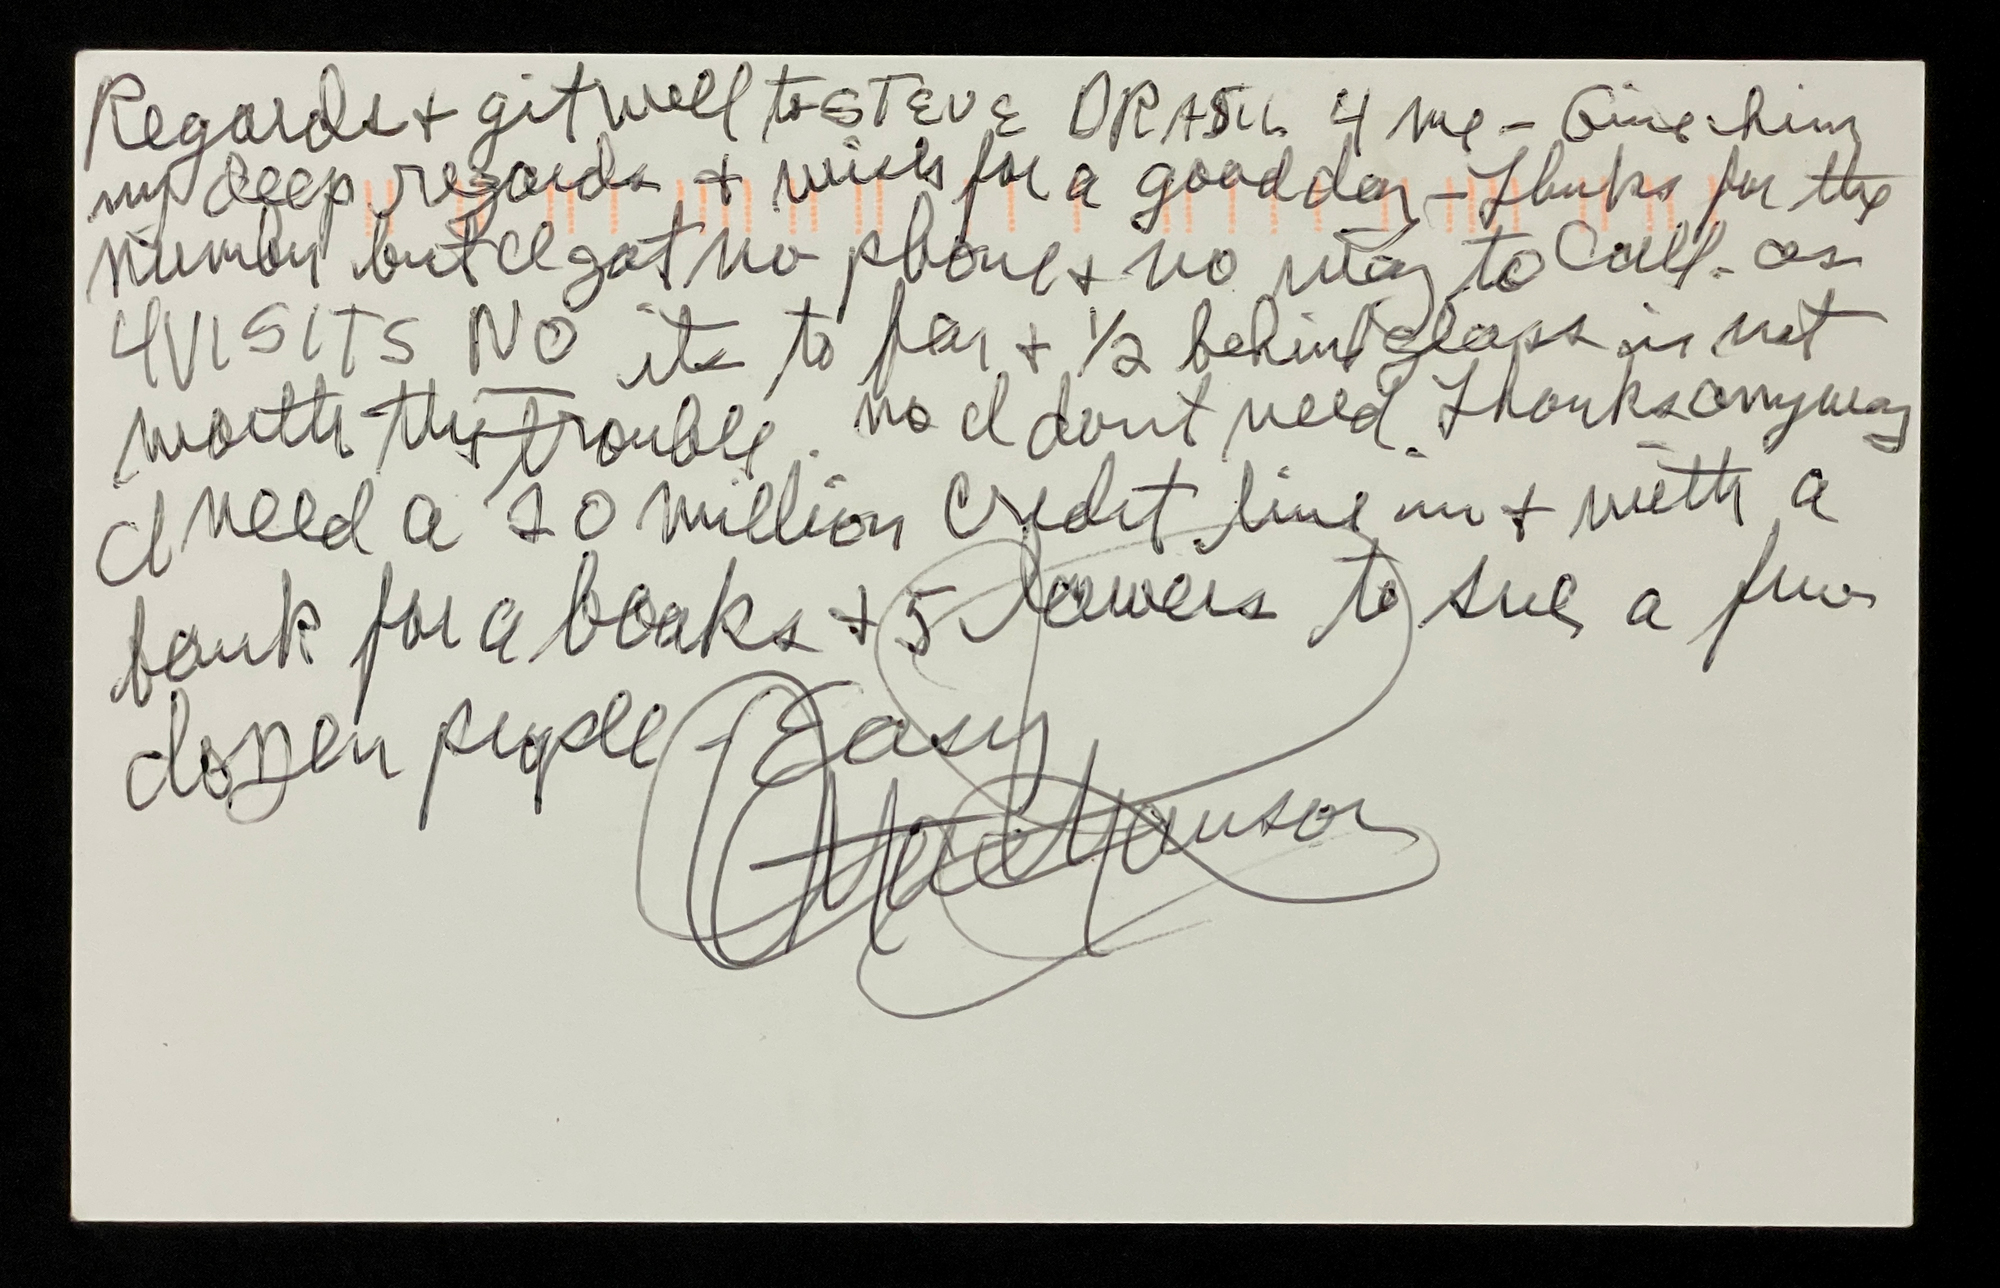 Regards + git well to STEVE DRASIL 4 me - Give him
my deep regards + wish for a good day - Thanks for the
number but I got no phone + no way to call - as
4 VISITS NO its to far + 1/2 behind glass is not
worth the trouble. no I dont need. Thanks anyway
I need a 20 million credit line in + with a
bank for a books + 5 lawers to sue a few
dozen people - Easy
Manson